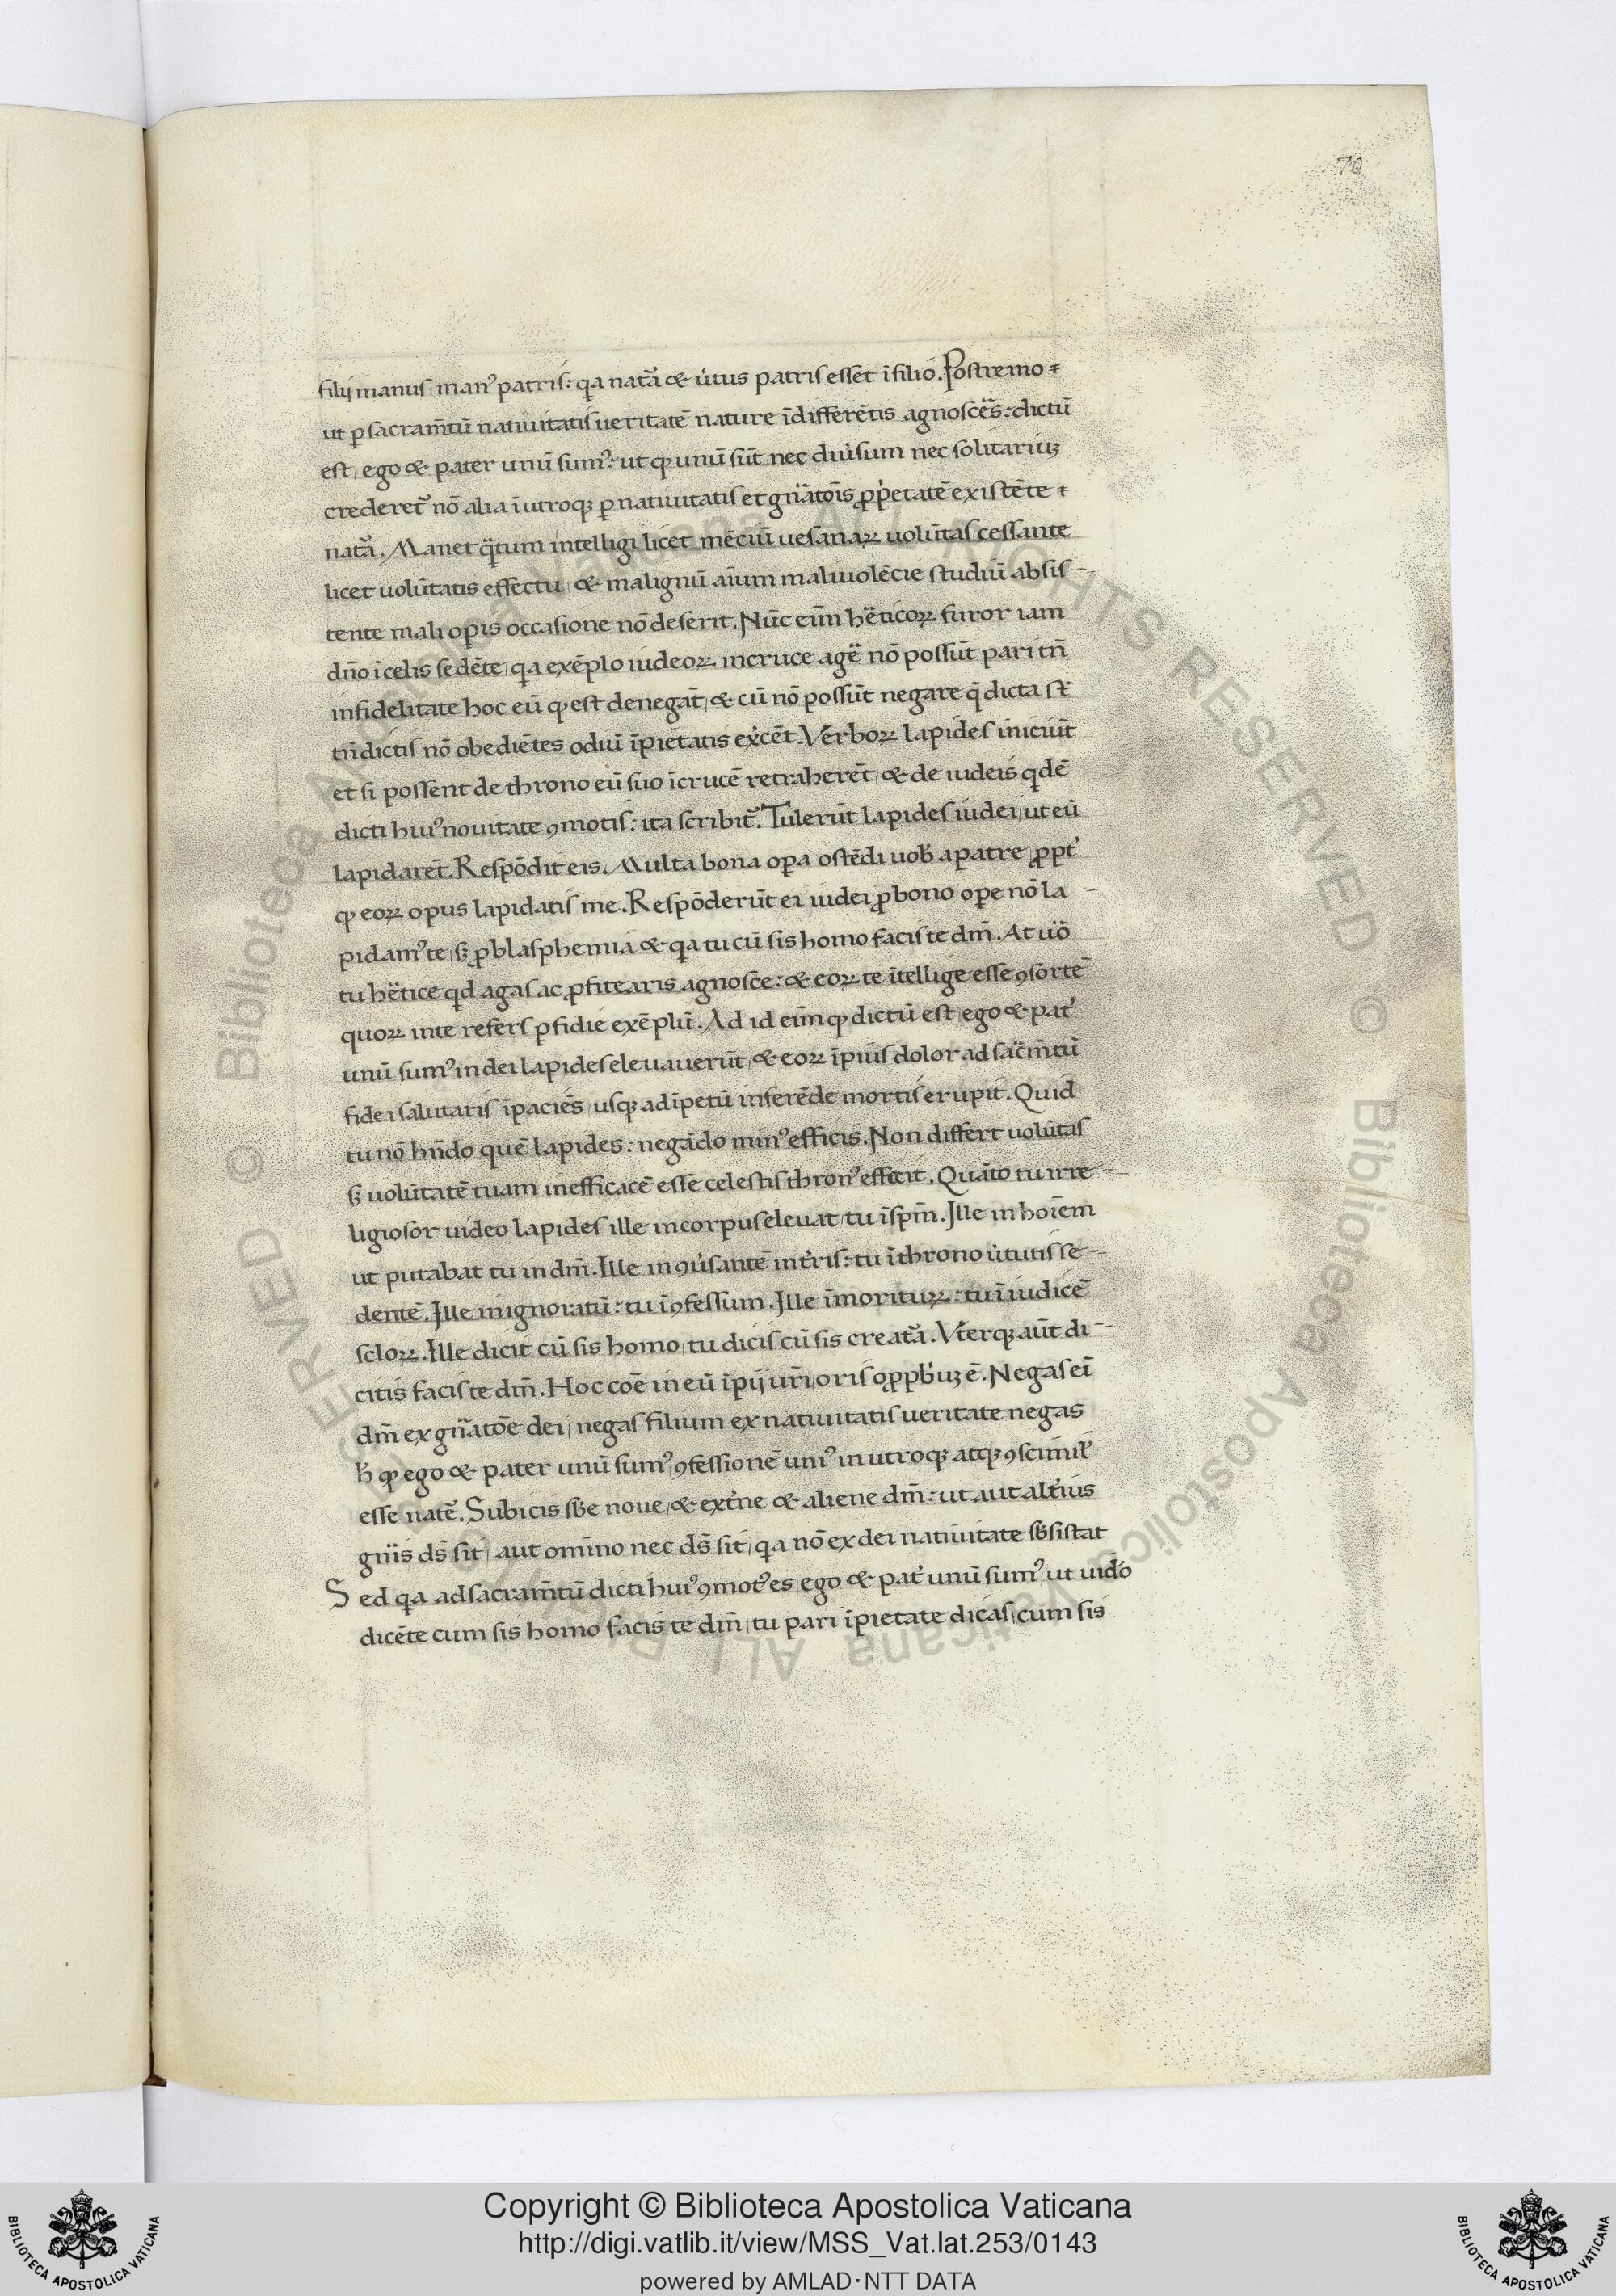 70
filij manus, manꝰ patris: qa nat᷑a & u̾tus patris esset ī filio. Postremo
ut ꝑ sacram̄tū natiuitatis ueritatē nature īdifferētis agnosce᷑s: dictū
est, ego & pater unū sumꝰ: ut ꝙ unū sūt nec diuisum nec solitariuȝ
crederet᷑ nō alia ī utroqȝ ꝑ natiuitatis et gn᷑atōis ꝓp̾etatē existēte
nat᷑a. Manet q̄tum intelligi licet mēciū uesanaꝝ uolūtas, cessante
licet uolūtatis effectu, & malignū aīum maliuolēcie studiū absis-
tente mali oꝑis occasione nō deserit. Nūc eīm he᷑ticoꝝ furor iam
dn̄o ī celis sedēte, qa exēplo iudeoꝝ in cruce age᷑ nō possūt pari tn̄
infidelitate hoc eū ꝙ est denegāt, & cū nō possūt negare q̄ dicta st̄
tn̄ dictis nō obediētes odiū īpietatis ex̾cēt. Verboꝝ lapides iniciūt
et si possent de throno eū suo ī crucē retraherēt, & de iudeis qdē
dicti huiꝰ nouitate ꝯmotis: ita scribit᷑. Tulerūt lapides iudei, ut eū
lapidarēt. Respōdit eis. Multa bona oꝑa ostēdi uob̾ a patre ꝓpt̾
ꝙ eoꝝ opus lapidatis me. Respōderūt ei iudei ꝓ bono oꝑe nō la-
pidamꝰ te, sȝ ꝓ blasphemia & qa tu cū sis homo facis te dm̄. At uo᷑
tu he᷑tice qd agas ac ꝓfitearis agnosce: & eoꝝ te ītellige esse ꝯsortē
quoꝝ in te refers ꝑfidie exēplū. Ad id eīm ꝙ dictū est ego & pat̾
unū sumꝰ iudei lapides eleuauerūt, & eoꝝ īpius dolor ad sac᷑m̄tū
fidei salutaris īpaciēs, usqȝ ad īpetū inferēde mortis erupit. Quid
tu nō hn̄do quē lapides: negādo minꝰ efficis. Non differt uolūtas
sȝ uolūtatē tuam inefficacē esse celestis thronꝰ efficit. Quāto tu irre-
ligiosor iudeo lapides ille in corpus eleuat, tu ī spm̄. Ille in hoīem
ut putabat tu in dm̄. Ille in ꝯu̾santē in t̾ris: tu ī throno u̾tutis se-
dentē. Ille in ignoratū: tu ī ꝯfessum. Ille ī morituꝝ: tu ī iudicē
sclo̅ꝝ. Ille dicit cū sis homo, tu dicis cū sis creat᷑a. Vterqȝ aūt di-
citis facis te dm̄. Hoc coē in eū īpij uri̅ oris opp̱b̾iuȝ ē. Negas eī
dm̄ ex gn᷑atōe dei, negas filium ex natiuitatis ueritate negas
h̾ ꝙ ego & pater unū sumꝰ, ꝯfessionē uniꝰ in utroqȝ atqȝ ꝯscimil̾
esse nat᷑e. Subicis sb̾e noue, & ext̾ne & aliene dm̄: ut aut alt̾ius
gn̄is ds̄ sit, aut omīno nec ds̄ sit, qa nō ex dei natiuitate sb̾sistat
Sed qa ad sacram̄tū dicti huiꝰ ꝯmotꝰ es, ego & pat̾ unū sumꝰ, ut iud̾o
dicēte cum sis homo facis te dm̄, tu pari īpietate dicas, cum sis
© Biblioteca Apostolica Vaticana ALL RIGHTS RESERVED © Biblioteca Apostolica Vaticana ALL RIGHTS RESERVED
Copyright © Biblioteca Apostolica Vaticana
http://digi.vatlib.it/view/MSS_Vat.lat.253/0143
powered by AMLAD·NTT DATA
BIBLIOTECA APOSTOLICA VATICANA
BIBLIOTECA APOSTOLICA VATICANA